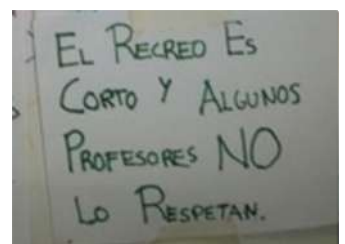 EL RECREO ES
CORTO Y ALGUNOS
PROFESORES NO
LO RESPETAN.